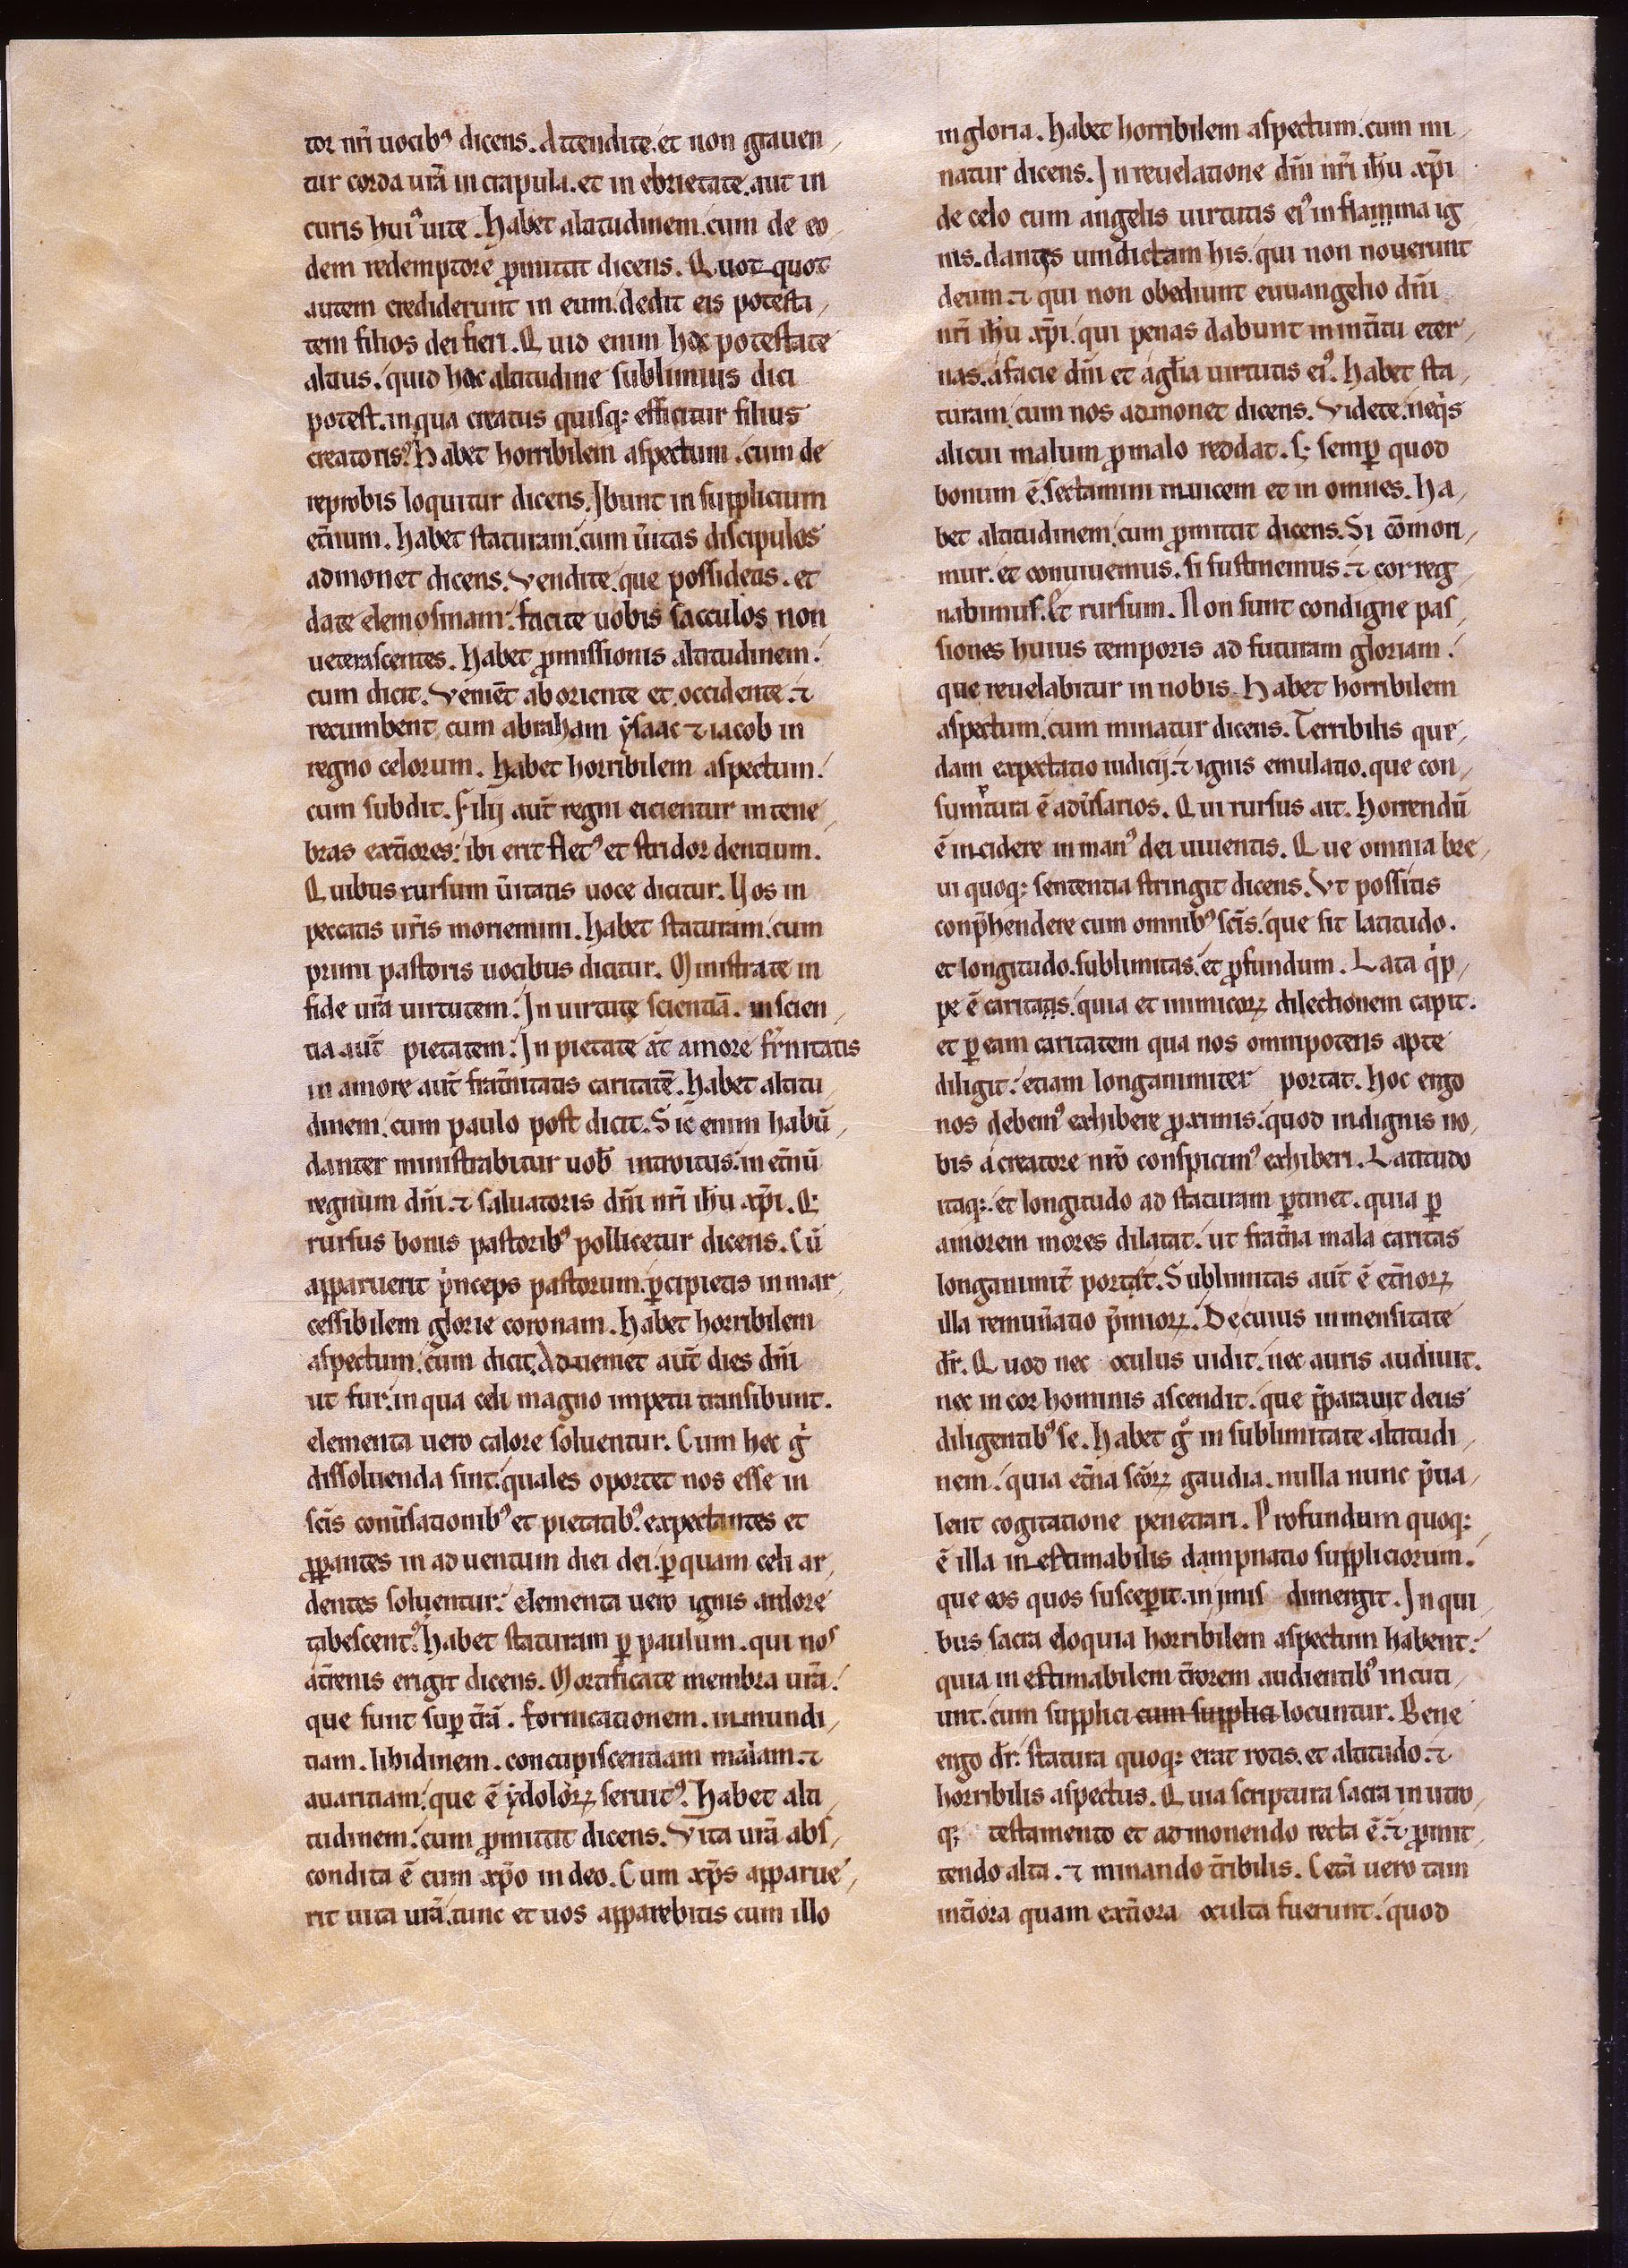 tor nr̄i uocibꝰ dicens. Attendite. et non grauen/
tur corda ur̄a in crapula. et in ebrietate. aut in
curis huiꝰ uite. Habet altitudinem. cum de eo/
dem redemptore ꝓmittit dicens. Quot quot
autem crediderunt in eum. dedit eis potesta/
tem filios dei fieri. Quid enim hac potestate
altius. quid hac altitudine sublimius dici
potest. in qua creatus quisq; efficitur filius
creatoris? Habet horribilem aspectum. cum de
reprobis loquitur dicens. Ibunt in supplicium
et̄num. Habet staturam. cum ūitas discipulos
admonet dicens. Vendite. que possidetis. et
date elemosinam: facite uobis sacculos non
ueterascentes. Habet ꝓmissionis altitudinem.
cum dicit. Venient̄ ab oriente et occidente. ⁊
recumbent cum abraham ẏsaac ⁊ iacob in
regno celorum. Habet horribilem aspectum.
cum subdit. Filij aut̄ regni eicientur in tene/
bras ext̄iores: ibi erit fletꝰ et stridor dentium.
Quibus rursum ūitatis uoce dicitur. Uos in
peccatis ur̄is moriemini. Habet staturam. cum
primi pastoris uocibus dicitur. Ministrate in
fide ur̄a uirtutem: In uirtute scientiā. in scien/
tia aut̄ pietatem: In pietate āt amore fr̄nitatis
in amore aut̄ frat̄nitatis caritatē. Habet altitu/
dinem. cum paulo post dicit. Sic̄ enim habū/
danter ministrabitur uob̄ introitus. in et̄nū
regnum dn̄i. ⁊ saluatoris dn̄i nr̄i ih̄u xp̄i. Q;
rursus bonis pastoribꝰ pollicetur dicens. Cū
apparuerit p̄nceps pastorum. ꝑcipietis inmar/
cessibilem glorie coronam. Habet horribilem
aspectum. cum dicit. Adueniet aut̄ dies dn̄i
ut fur. in qua celi magno impetu transibunt.
elementa uero calore soluentur. Cum hec g̊
dissoluenda sint. quales oportet nos esse in
sc̄is conūsationibꝰ et pietatibꝰ. expectantes et
ꝓꝑantes in aduentum diei dei. ꝑ quam celi ar/
dentes soluentur: elementa uero ignis ardore
tabescentꝰ? Habet staturam ꝑ paulum. qui nos
a t̄renis erigit dicens. Mortificate membra ur̄a.
que sunt suꝑ t̄rā. fornicationem. inmundi/
tiam. libidinem. concupiscentiam malam. ⁊
auaritiam: que ē ẏdoloꝝ seruitꝰ. Habet alti/
tudinem. cum ꝓmittit dicens. Vita ur̄a abs/
condita ē cum xp̄o in deo. Cum xp̄s apparue/
rit uita ur̄a. tunc et uos apparebitis cum illo
in gloria. Habet horribilem aspectum. cum mi/
natur dicens. In reuelatione dn̄i nr̄i ih̄u xp̄i
de celo cum angelis uirtutis eiꝰ in flamma ig
nis. dantes uindictam his. qui non nouerunt
deum. ⁊ qui non obediunt euuangelio dn̄i
nr̄i ih̄u xp̄i. qui penas dabunt in int̄itu eter/
nas. a facie dn̄i et a gl̄ia uirtutis eiꝰ. Habet sta/
turam. cum nos admonet dicens. Videte. neq̇s
alicui malum ꝓ malo reddat. S; semꝑ quod
bonum ē. sectamini inuicem et in omnes. Ha/
bet altitudinem. cum ꝓmittit dicens. Si cōmori/
mur. et conuiuemus. si sustinemus. ⁊ correg/
nabimus. Et rursum. Non sunt condigne pas/
siones huius temporis ad futuram gloriam.
que reuelabitur in nobis. Habet horribilem
aspectum. cum minatur dicens. Terribilis que/
dam expectatio iudicij. ⁊ ignis emulatio. que con/
sumptura ē adūsarios. Qui rursus ait. Horrendū
ē incidere in manꝰ dei uiuentis. Que omnia bre/
ui quoq; sententia stringit dicens. Vt possitis
conp̄hendere cum omnibꝰ sc̄is. que sit latitudo.
et longitudo. sublimitas. et ꝓfundum. Lata q̇p/
pe ē caritatis. quia et inimicoꝝ dilectionem capit.
et ꝑ eam caritatem qua nos omnipotens apte
diligit: etiam longanimiter portat. Hoc ergo
nos debemꝰ exhibere ꝓximis. quod indignis no/
bis a creatore nr̄o conspicimꝰ exhiberi. Latitudo
itaq;. et longitudo ad staturam ꝑtinet. quia ꝑ
amorem mores dilatat. ut frat̄na mala caritas
longanimit̄ portat. Sublimitas aut̄ ē et̄noꝝ
illa remun̄atio p̄mioꝝ. De cuius inmensitate
dr̄. Quod nec oculus uidit. nec auris audiuit.
nec in cor hominis ascendit. que p̄parauit deus
diligentibꝰ se. Habet g̊ in sublimitate altitudi/
nem. quia et̄na sc̄oꝝ gaudia. nulla nunc p̄ua/
lent cogitatione penetrari. Profundum quoq;
ē illa inestimabilis dampnatio suppliciorum.
que eos quos susceꝑit. in imis dimergit. In qui/
bus sacra eloquia horribilem aspectum habent:
quia inestimabilem t̄rorem audientibꝰ incuti/
unt. cum supplici cum supplici locuntur. Bene
ergo dr̄: statura quoq; erat rotis. et altitudo. ⁊
horribilis aspectus. Quia scriptura sacra in utro/
q; testamento et admonendo recta ē. ⁊ ꝓmit/
tendo alta. ⁊ minando t̄ribilis. Cet̄a uero tam
int̄iora quam ext̄iora oculta fuerunt. quod